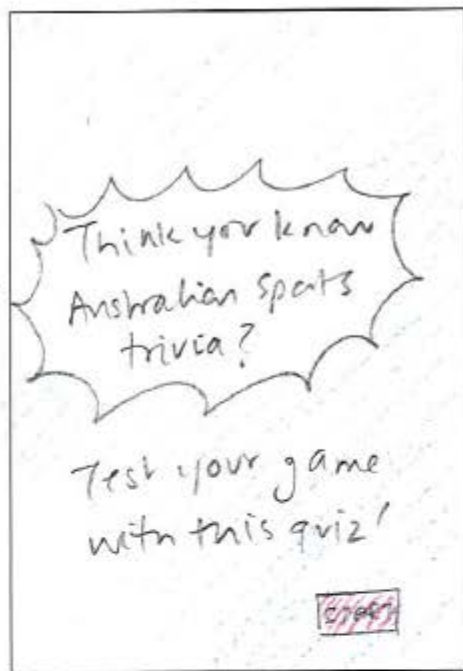 Think you know
Australian sports
trivia?
Test your game
with this quiz!
start